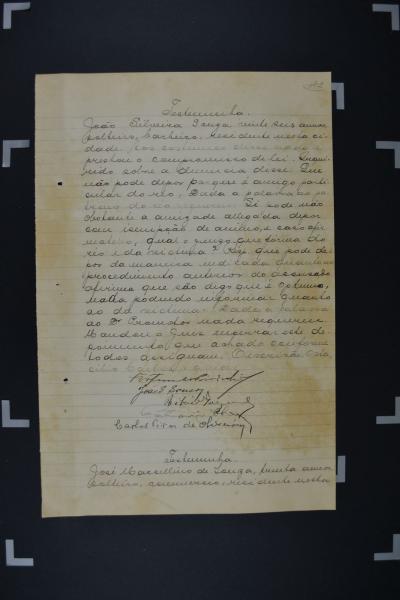 Testemunha.
João Silveira Souza vinte seis annos
solteiro, barbeiro, residente nesta ci-
dade, aos costumes disse nada e
prestou o compromisso de lei. Inqui-
rido sobre a denuncia disse: Que
não pode depor porque é amigo parti-
cular do réo. Dada a palavra ao pa-
trono do réo
Si pode não
obstante a amizade allegada depor
com isempção de animo, e caso affir-
mativo, qual o juizo que forma do
réo e da victima? Resp. que pode de-
por da maneira indicada quanto ao
procedimento anterior do accusado
affirma que são digo que é optimo,
nada podendo informar quanto
ao da victima. Dada a palavra
ao Dr Promotor nada requereu.
Mandou o Juiz encerrar este de-
poimento que achado conforme
todos assignam. O escrivão
João S. Souza
Carlos Pires de Oliveira
Testemunha.
José Marcellino de Souza, trinta annos
solteiro, commercio, residente nesta